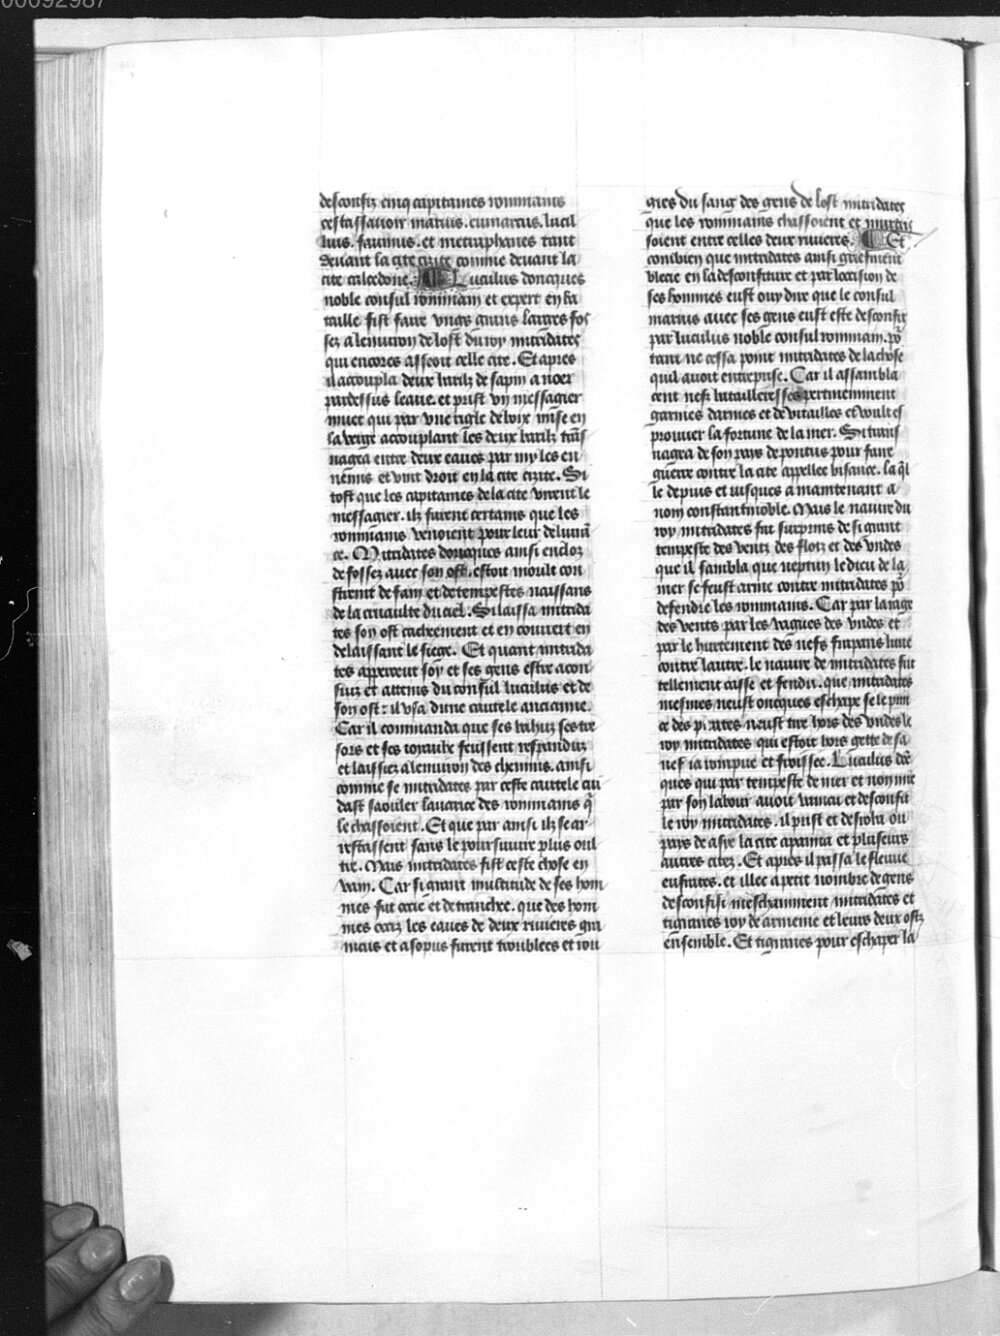 00092987
desconfiz cinq capitaines rommains
cestassauoir marius. eumarcus. lucil
lius. faunius. et metrophanes tant
deuant la cite cizite comme deuant la
cite calcedone. Lucullus doncques
noble consul rommain et expert en ba
taille fist faire vngs grans larges fos
sez alenuiron de lost du roy mitridates
qui encores asseoit celle cite. Et apres
il accoupla deux barilz de sapin a noer
pardessus leaue. et prist vn messagier
muet qui par vne rigle de bois mise en
la verge accouplant les deux barilz trãs
nagea entre deux eaues par my les en
nemis et vint droit en la cite cizite. Si
tost que les capitaines de la cite virent le
messagier. ilz furent certains que les
rommains venoient pour leur deliurã
ce. Mitridates doncques ainsi encloz
de fossez auec son ost. estoit moult con
straint de fain et de tempestes naissans
de la cruaulte du ciel. Si laissa mitrida
tes son ost cacheement et en couuert en
delaissant le siege. Et quant mitrida
tes apperceut soy et ses gens estre acon
suiz et attains du consul lucullus et de
son ost: il vsa dune cautele ancienne.
Car il commanda que ses bahuz ses tre
sors et ses ioyaulx feussent respanduz
et laissiez alenuiron des chemins. ainsi
comme se mitridates par ceste cautele cui
dast saouler lauarice des rommains q̃
le chassoient. Et que par ainsi ilz se ar
restassent sans le poursuiure plus oul
tre. Mais mitridates fist ceste chose en
vain. Car si grant multitude de ses hom
mes fut occie et detrenchee. que des hom
mes occiz les eaues de deux riuieres gra
nicus et asopus furent troublees et rou
gies du sang des gens de lost mitridates
que les rommains chassoient et murtri
soient entre celles deux riuieres. Et
combien que mitridates ainsi griefment
blecie en la desconfiture et par loccision de
ses hommes eust ouy dire que le consul
marius auec ses gens eust este desconfit
par lucullus noble consul rommain. po
tant ne cessa point mitridates de la chose
quil auoit entreprise. Car il assambla
cent nefz bataillesses pertinemment
garnies darmes et de vitailles et voult es
prouuer la fortune de la mer. Si trans
nagea de son pays de pontus pour faire
guerre contre la cite appellee bisance. la q̃l
le depuis et iusques a maintenant a
nom constantinoble. Mais le nauire du
roy mitridates fut surprins de si grant
tempeste des ventz des flotz et des vndes
que il sambla que neptun le dieu de la
mer se feust arme contre mitridates po
defendre les rommains. Car par la rage
des vents par les vagues des vndes et
par le hurtement des nefs frapans lune
contre lautre. le nauire de mitridates fut
tellement casse et fendu. que mitridates
mesmes neust oncques eschape se le prin
ce des pirates neust tire hors des vndes le
roy mitridates qui estoit hors gette de sa
nef ia rompue et froissee. Lucullus dõc
ques qui par tempeste de mer et non mie
par son labour auoit vaincu et desconfit
le roy mitridates. il prist et desroba ou
pays de asye la cite apamia et pluseurs
autres citez. Et apres il passa le fleuue
eufrates. et illec a petit nombre de gens
desconfist meschamment mitridates et
tigranes roy de armenie et leurs deux ostz
ensemble. Et tigranes pour eschaper la